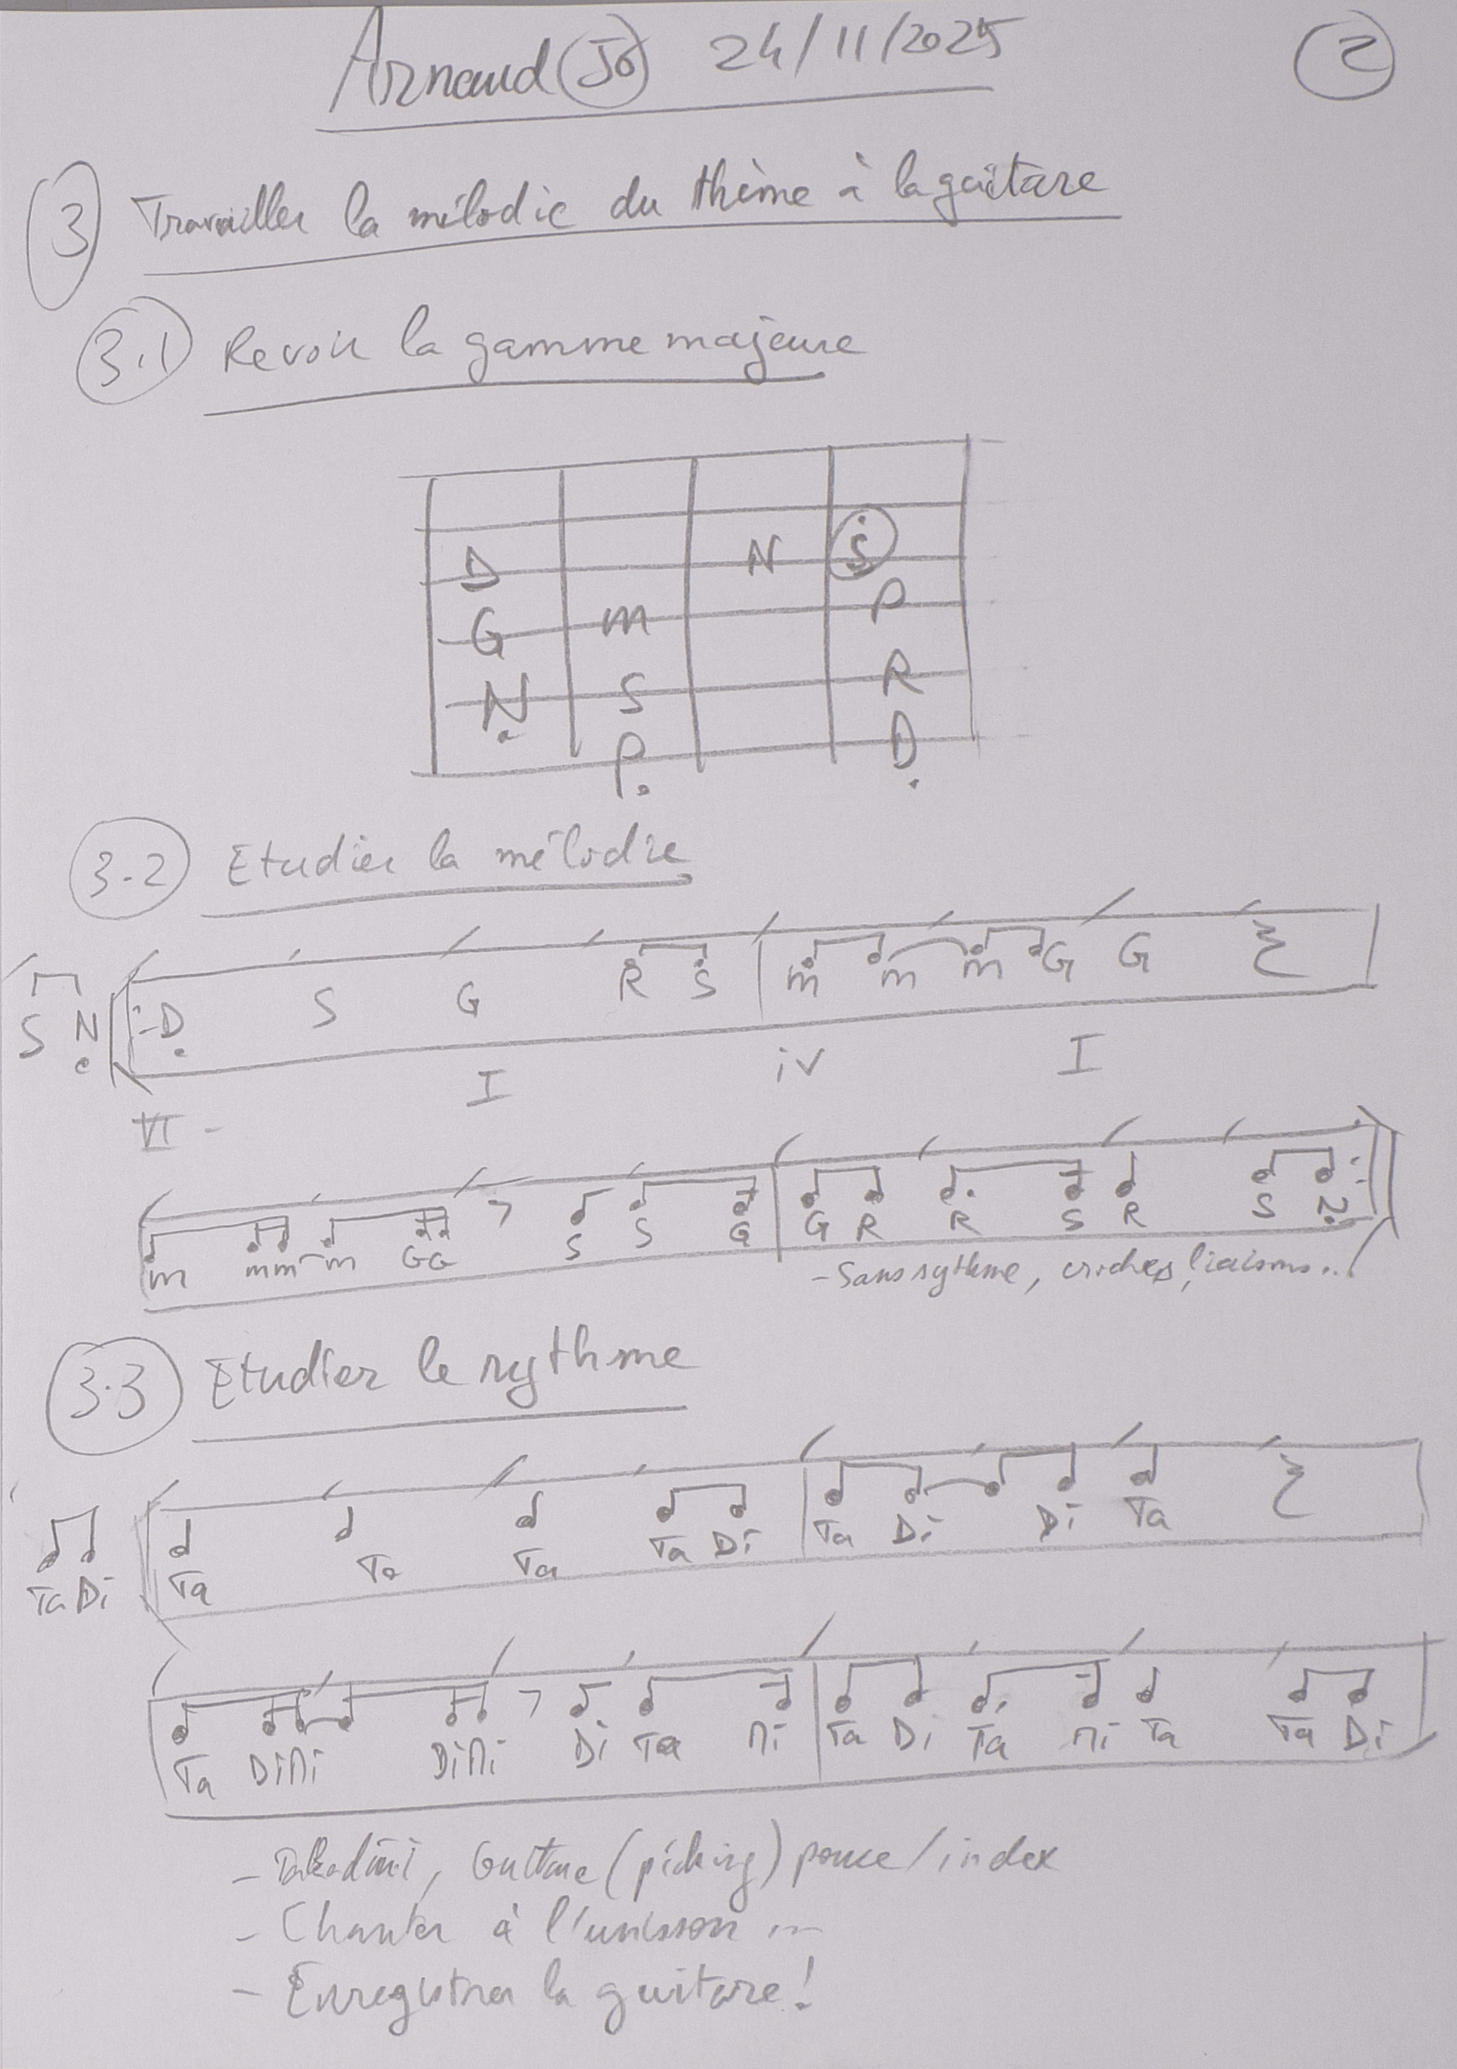 Arnaud (Jo) 24/11/2025 2
3 Travailler la mélodie du thème à la guitare
3.1 Revoir la gamme majeure
D N S
G m P
N S R
P D
3.2 Etudier la mélodie
S N D S G R S m m m G G
VI - I iv I
m m m m G G S S G G R R S R S N
- Sans rythme, croches, liaisons...
3.3 Etudier le rythme
Ta Di Ta Ta Ta Ta Di Ta Di Di Ta
Ta Di mi Di mi Di Ta mi Ta Di Ta mi Ta Ta Di
- Takadimi, Guitare (picking) pouce/index
- Chanter à l'unisson ...
- Enregistrer la guitare!